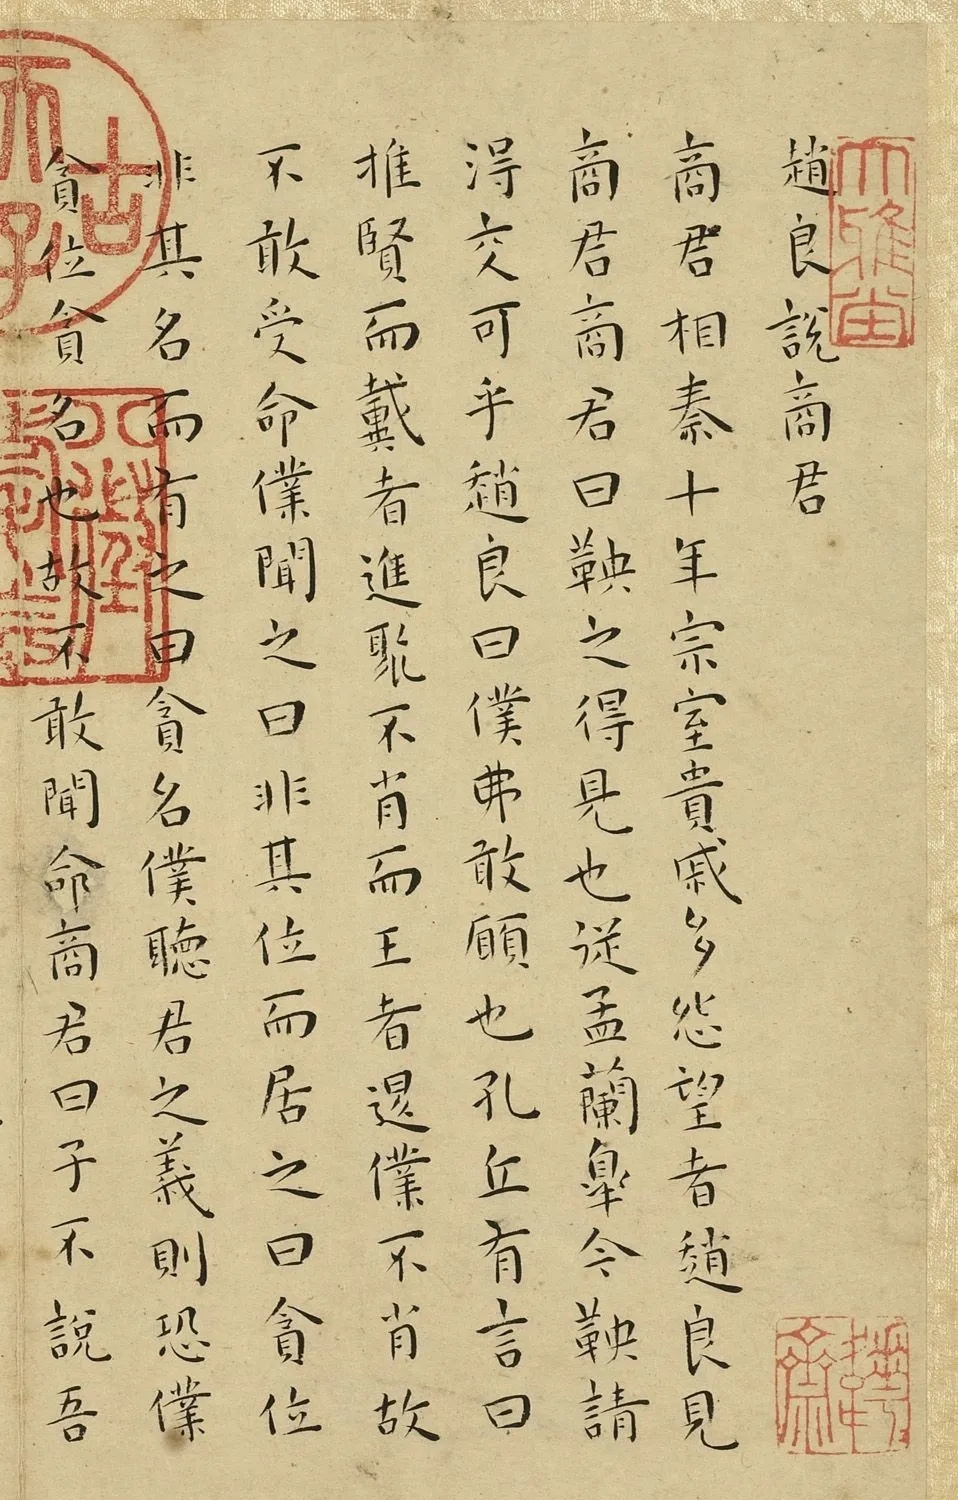 趙良說商君
商君相秦十年宗室貴戚多怨望者趙良見
商君商君曰鞅之得見也從孟蘭皋今鞅請
得交可乎趙良曰僕弗敢願也孔丘有言曰
推賢而戴者進聚不肖而王者退僕不肖故
不敢受命僕聞之曰非其位而居之曰貪位
非其名而有之曰貪名僕聽君之義則恐僕
貪位貪名也故不敢聞命商君曰子不說吾